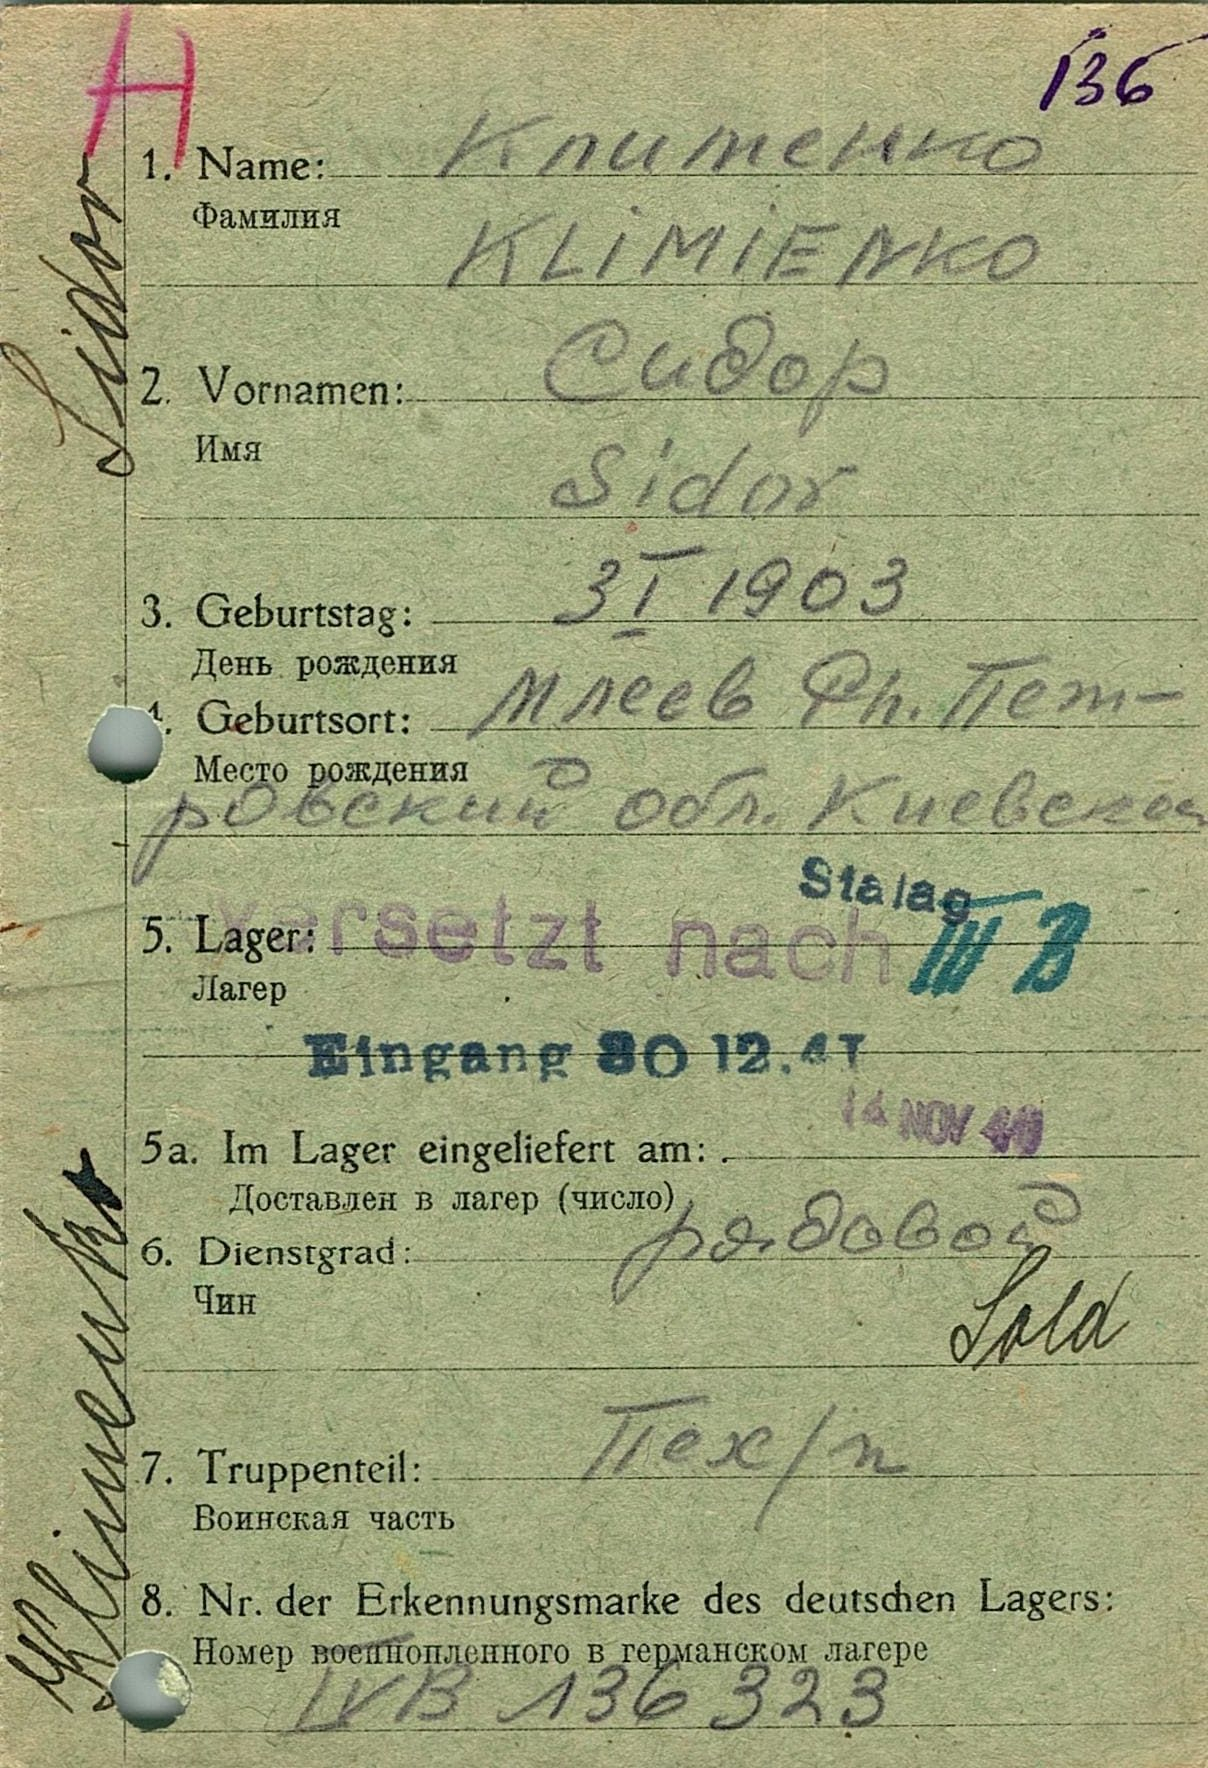 H
136
1. Name: Клименко
Фамилия
KLiMiENKO
2. Vornamen: Сидор
Имя
Sidor
3. Geburtstag: 3 I 1903
День рождения
4. Geburtsort: Млеев Рп. Пет-
Место рождения
ровский обл. Киевская
Stalag
5. Lager: versetzt nach III B
Лагер
Eingang 30 12.41
14 NOV 41
5a. Im Lager eingeliefert am:
Доставлен в лагер (число)
6. Dienstgrad: рядовой
Чин
Sold
7. Truppenteil: Пех/п
Воинская часть
8. Nr. der Erkennungsmarke des deutschen Lagers:
Номер военнопленного в германском лагере
IVB 136323
Klimenko
Sidor